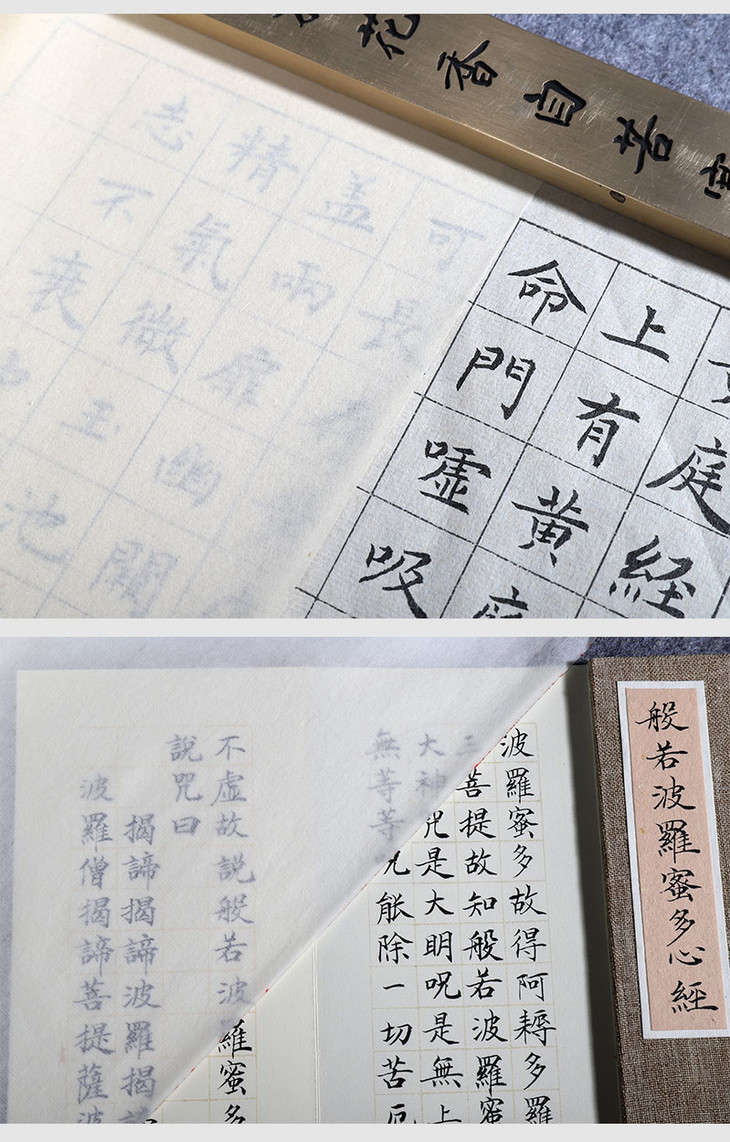 花香自苦寒
庭經
上有黃庭
命門噓吸
可長
盖兩扉幽闕
精氣微玉池
志不衰
般若波羅蜜多心經
波羅蜜多故得阿耨多羅
三菩提故知般若波羅蜜
大神咒是大明咒是無上
無等等咒能除一切苦厄
不虛故說般若波羅蜜多
說咒曰
揭諦揭諦波羅揭諦
波羅僧揭諦菩提薩婆